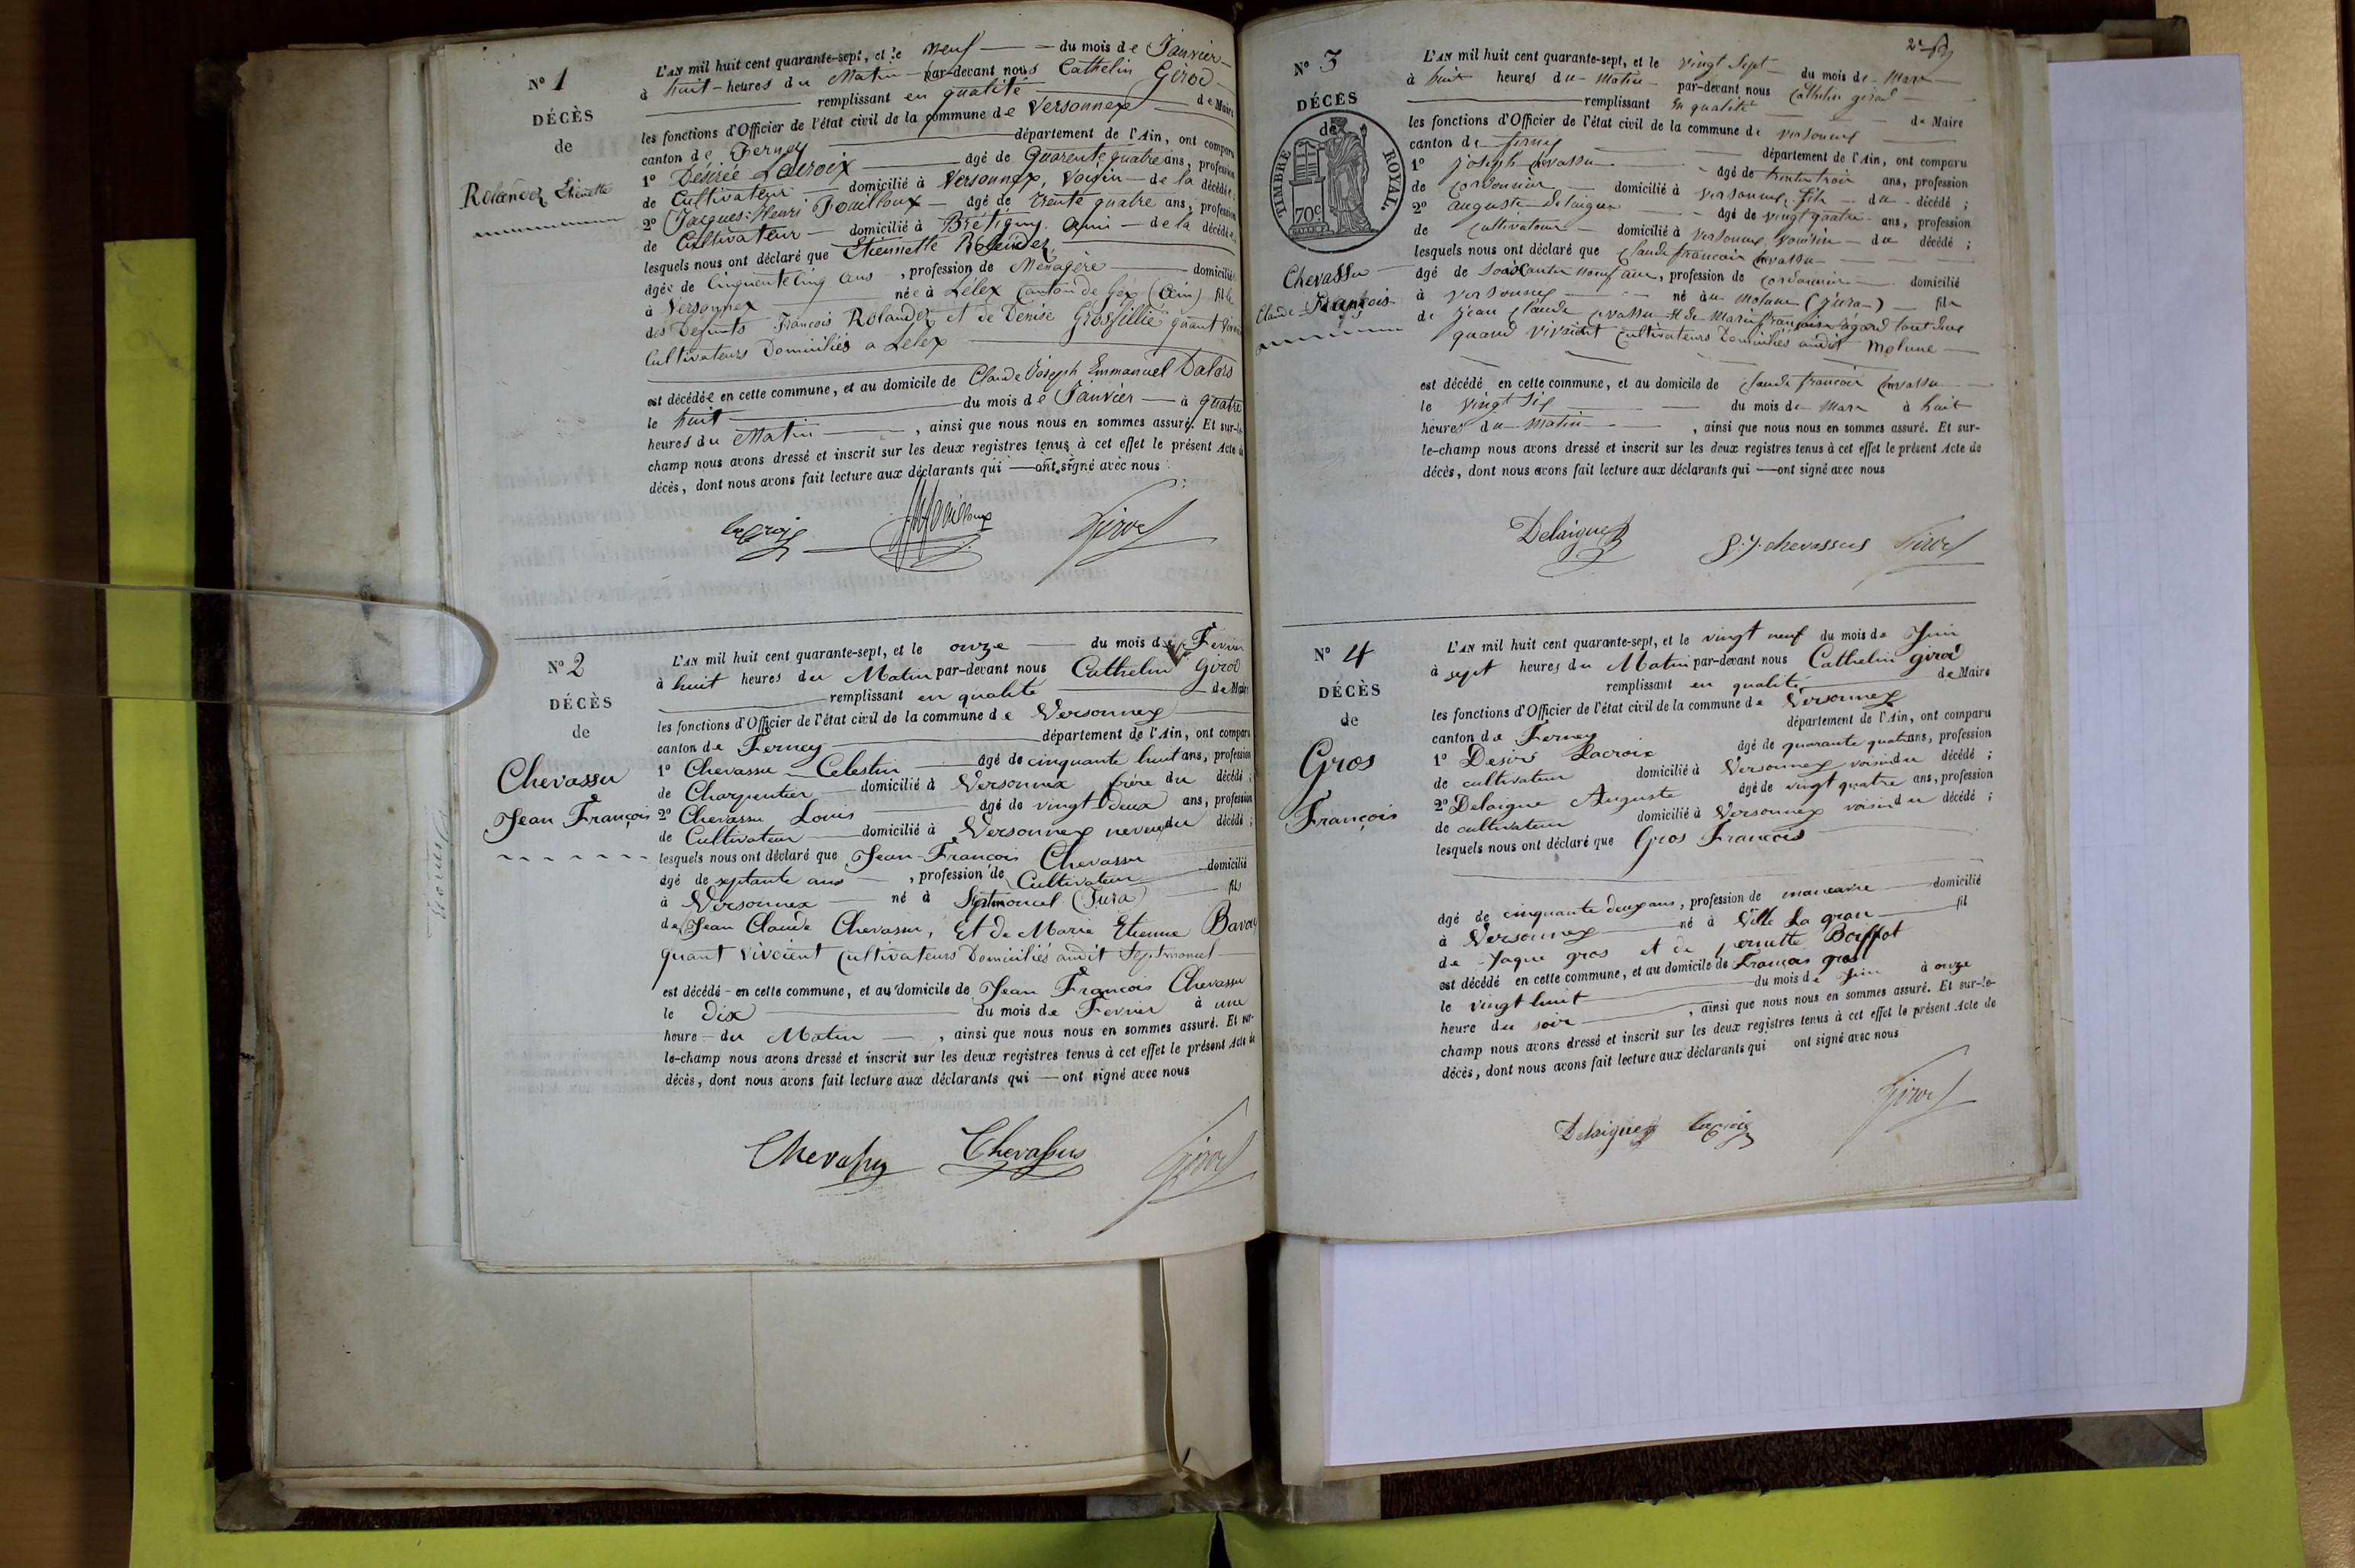 N° 1
DÉCÈS
de
Rolandez Etiennette
L'AN mil huit cent quarante-sept, et le neuf du mois de Janvier
à huit heures du Matin par-devant nous Cathelin Girod
remplissant en qualité de Maire
les fonctions d'Officier de l'état civil de la commune de Versonnex
canton de Ferney département de l'Ain, ont comparu
1° Désirée Lacroix âgé de Quarente quatre ans, profession
de Cultivateur domicilié à Versonnex, Voisin de la décédée;
2° Jacques-Henri Fouilloux âgé de trente quatre ans, profession
de Cultivateur domicilié à Brétigny Ami de la décédée
lesquels nous ont déclaré que Etiennette Rolandez
âgée de Cinquente cinq ans, profession de Ménagère domicilié
à Versonnex née à Lélex Canton de Gex (Ain) fille
des Defunts François Rolandez et de Denise Grosfillie quant
Cultivateurs Domiciliés a Lélex
est décédée en cette commune, et au domicile de Claude Joseph Emmanuel Dalors
le huit du mois de Janvier à quatre
heures du Matin, ainsi que nous nous en sommes assuré. Et sur-le-
champ nous avons dressé et inscrit sur les deux registres tenus à cet effet le présent Acte de
décès, dont nous avons fait lecture aux déclarants qui ont signé avec nous
lacroix Fouilloux Girod
N° 2
DÉCÈS
de
Chevassu
Jean François
L'AN mil huit cent quarante-sept, et le onze du mois de Fevrier
à huit heures du Matin par-devant nous Cathelin Girod
remplissant en qualité de Maire
les fonctions d'Officier de l'état civil de la commune de Versonnex
canton de Ferney département de l'Ain, ont comparu
1° Chevassu Celestin âgé de cinquante huit ans, profession
de Charpentier domicilié à Versonnex frère du décédé;
2° Chevassu Louis âgé de vingt deux ans, profession
de Cultivateur domicilié à Versonnex neveu du décédé;
lesquels nous ont déclaré que Jean-François Chevassu
âgé de septante ans, profession de Cultivateur domicilié
à Versonnex né à Septmoncel (Jura) fils
de Jean Claude Chevassu, Et de Marie Etienne
quant vivoient Cultivateurs Domiciliés audit Septmoncel
est décédé en cette commune, et au domicile de Jean François Chevassu
le dix du mois de Fevrier à une
heure du Matin, ainsi que nous nous en sommes assuré. Et sur-
le-champ nous avons dressé et inscrit sur les deux registres tenus à cet effet le présent Acte de
décès, dont nous avons fait lecture aux déclarants qui ont signé avec nous
Chevassu Chevassus Girod
N° 3
DÉCÈS
de
TIMBRE ROYAL.
70c
Chevassu
Claude François
L'AN mil huit cent quarante-sept, et le vingt Sept du mois de Mars
à huit heures du Matin par-devant nous Cathelin girod
remplissant en qualité de Maire
les fonctions d'Officier de l'état civil de la commune de versonnex
canton de ferney département de l'Ain, ont comparu
1° joseph chevassu âgé de trente trois ans, profession
de cordonnier domicilié à versonnex, fils du décédé;
2° auguste delaigue âgé de vingt quatre ans, profession
de cultivateur domicilié à versonnex voisin du décédé;
lesquels nous ont déclaré que Claude françois chevassu
âgé de soixante neuf ans, profession de cordonnier domicilié
à versonnex né au Molune (jura) fils
de jean claude chevassu et de Marie françoise tout deux
quand vivoient Cultivateurs Domiciliés audit molune
est décédé en cette commune, et au domicile de Claude françois chevassu
le vingt six du mois de Mars à huit
heures du matin, ainsi que nous nous en sommes assuré. Et sur-
le-champ nous avons dressé et inscrit sur les deux registres tenus à cet effet le présent Acte de
décès, dont nous avons fait lecture aux déclarants qui ont signé avec nous
Delaigue chevassus Girod
N° 4
DÉCÈS
de
Gros
François
L'AN mil huit cent quarante-sept, et le vingt neuf du mois de Juin
à sept heures du Matin par-devant nous Cathelin girod
remplissant en qualité de Maire
les fonctions d'Officier de l'état civil de la commune de Versonnex
canton de Ferney département de l'Ain, ont comparu
1° Desiré Lacroix âgé de quarante quatre ans, profession
de cultivateur domicilié à Versonnex voisin du décédé;
2° Delaigue Auguste âgé de vingt quatre ans, profession
de cultivateur domicilié à Versonnex voisin du décédé;
lesquels nous ont déclaré que Gros François
âgé de cinquante deux ans, profession de domicilié
à Versonnex né à Ville la gran fil
de Jaque gros et de pernette
est décédé en cette commune, et au domicile de François gros
le vingt huit du mois de Juin à onze
heure du soir, ainsi que nous nous en sommes assuré. Et sur-le-
champ nous avons dressé et inscrit sur les deux registres tenus à cet effet le présent Acte de
décès, dont nous avons fait lecture aux déclarants qui ont signé avec nous
Delaigue lacroix Girod